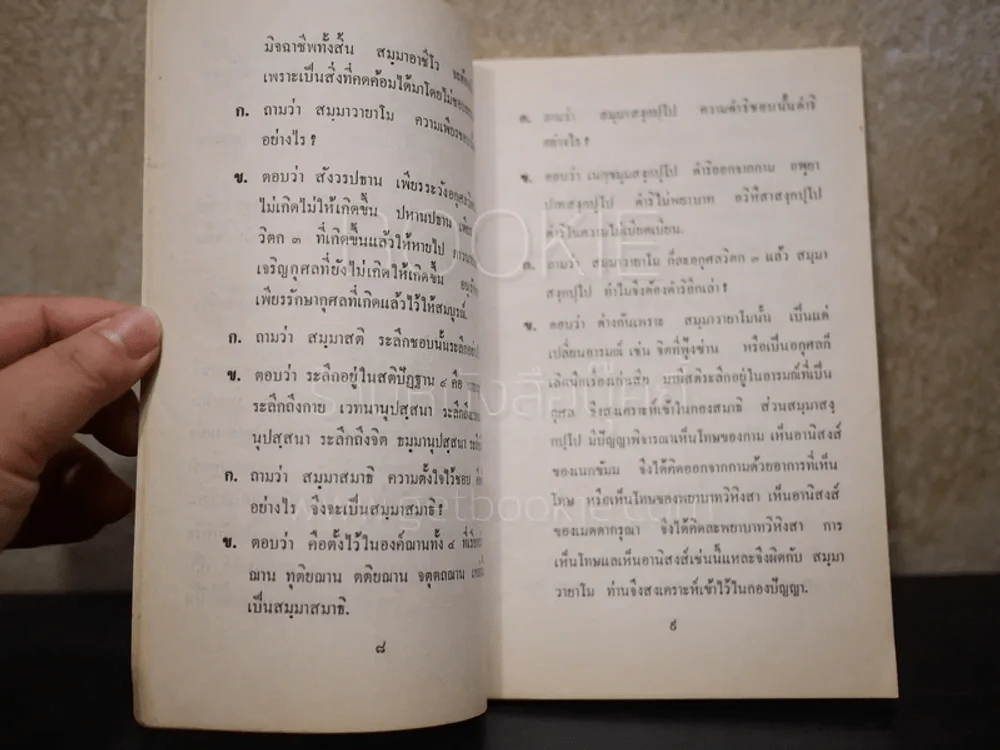 มิจฉาชีพทั้งสิ้น สมฺมาอาชีโว จะต้อง
เพราะเป็นสิ่งที่คดค้อมได้มาโดยไม่ชอบ
ก. ถามว่า สมฺมาวายาโม ความเพียรชอบ
อย่างไร ?
ข. ตอบว่า สังวรปธาน เพียรระวังอกุศลวิตก
ไม่เกิดไม่ให้เกิดขึ้น ปหานปธาน เพียร
วิตก ๓ ที่เกิดขึ้นแล้วให้หายไป ภาวนา
เจริญกุศลที่ยังไม่เกิดให้เกิดขึ้น อนุรัก
เพียรรักษากุศลที่เกิดแล้วไว้ให้สมบูรณ์.
ก. ถามว่า สมฺมาสติ ระลึกชอบนั้นระลึกอย่าง
ข. ตอบว่า ระลึกอยู่ในสติปัฏฐาน ๔ คือ
ระลึกถึงกาย เวทนานุปสฺสนา ระลึกถึง
นุปสฺสนา ระลึกถึงจิต ธมฺมานุปสฺสนา
ก. ถามว่า สมฺมาสมาธิ ความตั้งใจไว้ชอบ
อย่างไร จึงจะเป็นสมฺมาสมาธิ ?
ข. ตอบว่า คือตั้งไว้ในองค์ฌานทั้ง ๔ ที่เรียก
ฌาน ทุติยฌาน ตติยฌาน จตุตถฌาน
เป็นสมฺมาสมาธิ.
๘
ก. ถามว่า สมฺมาสงฺกปฺโป ความดำริชอบนั้นดำริ
อย่างไร ?
ข. ตอบว่า เนกฺขมฺมสงฺกปฺโป ดำริออกจากกาม อพฺยา
ปาทสงฺกปฺโป ดำริไม่พยาบาท อวิหึสาสงฺกปฺโป
ดำริในความไม่เบียดเบียน.
ก. ถามว่า สมฺมาวายาโม ก็ละอกุศลวิตก ๓ แล้ว สมฺมา
สงฺกปฺโป ทำไมจึงต้องดำริอีกเล่า ?
ข. ตอบว่า ต่างกันเพราะ สมฺมาวายาโมนั้น เป็นแต่
เปลี่ยนอารมณ์ เช่น จิตที่ฟุ้งซ่าน หรือเป็นอกุศลก็
เลิกนึกเรื่องเก่าเสีย มามีสติระลึกอยู่ในอารมณ์ที่เป็น
กุศล จึงสงเคราะห์เข้าในกองสมาธิ ส่วนสมฺมาสงฺ
กปฺโป มีปัญญาพิจารณาเห็นโทษของกาม เห็นอานิสงส์
ของเนกขัมม จึงได้คิดออกจากกามด้วยอาการที่เห็น
โทษ หรือเห็นโทษของพยาบาทวิหิงสา เห็นอานิสงส์
ของเมตตากรุณา จึงได้คิดละพยาบาทวิหิงสา การ
เห็นโทษแลเห็นอานิสงส์เช่นนี้แหละจึงผิดกับ สมฺมา
วายาโม ท่านจึงสงเคราะห์เข้าไว้ในกองปัญญา.
๙
www.getbookie.com